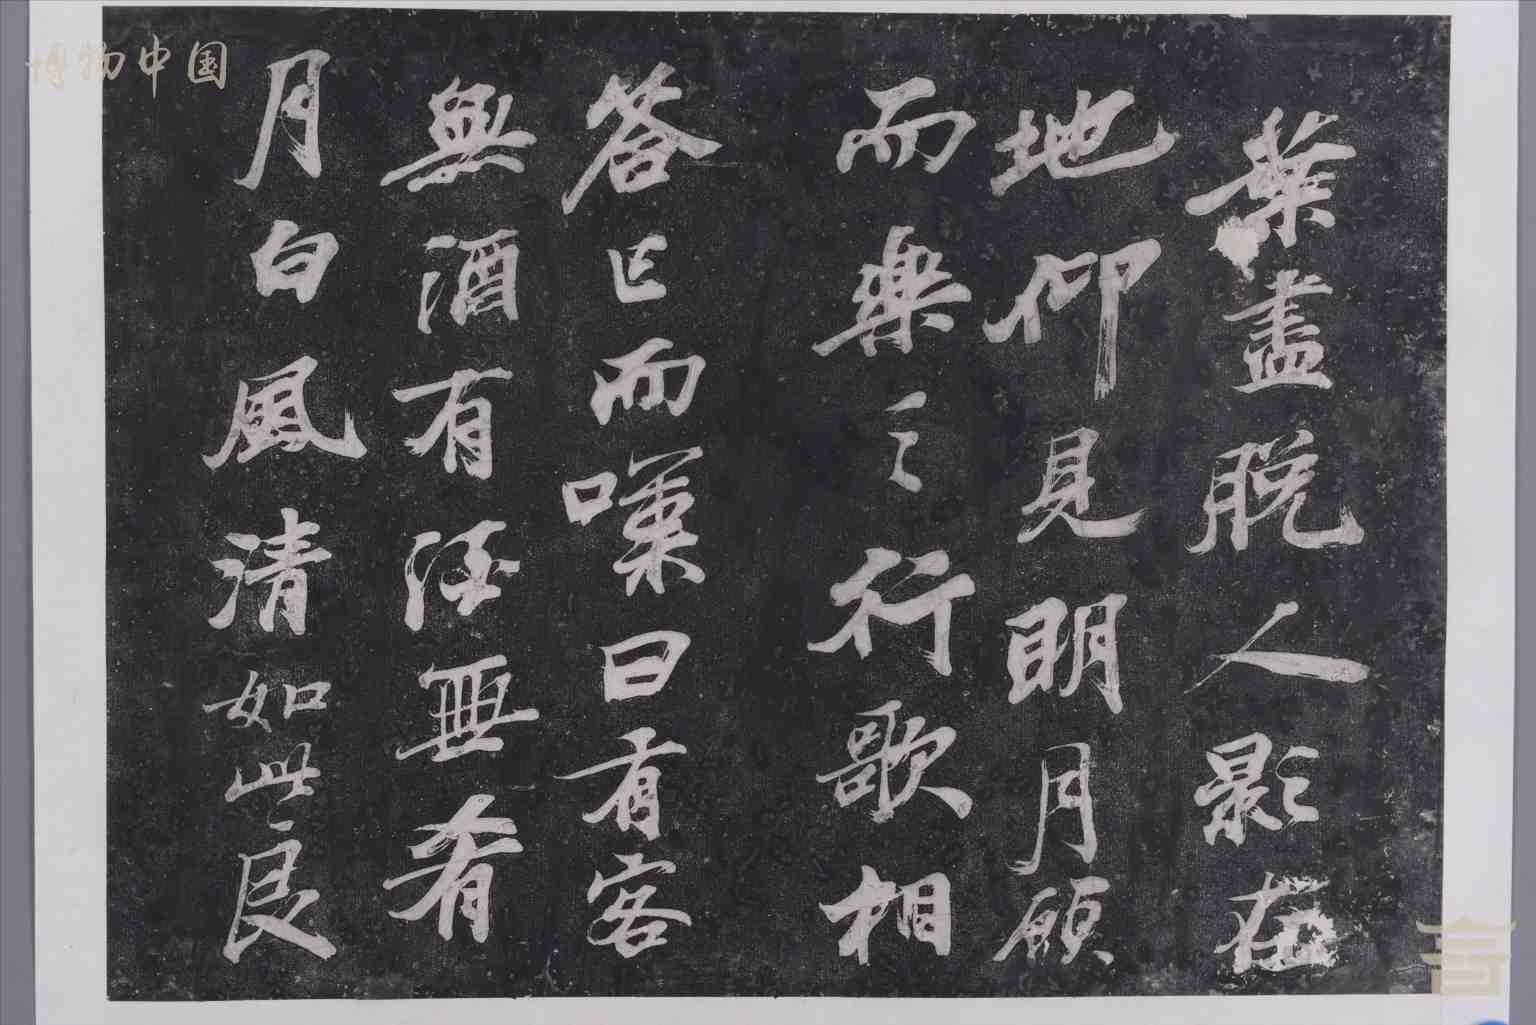 葉盡脫人影在
地仰見明月顧
而樂之行歌相
答已而嘆曰有客
無酒有酒無肴
月白風清如此良
博物中国